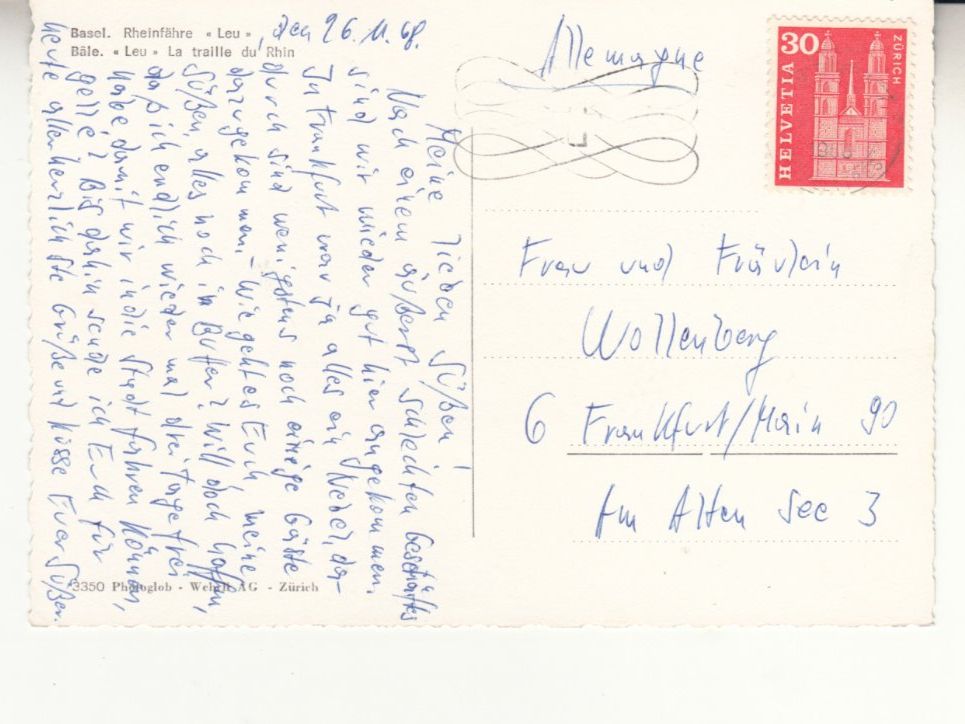 Basel. Rheinfähre « Leu »
Bâle. « Leu » La traille du Rhin
, den 26. 11. 68.
Meine lieben Süßen!
Nach einem äußerst schlechten Geschäfts
sind wir wieder gut hier angekommen.
In Frankfurt war ja alles ein Nebel, da-
durch sind wenigstens noch einige Gäste
dazugekommen. – Wie geht es Euch, meine
Süßen, alles noch in Butter? Will doch hoffen,
daß ich endlich wieder mal drei Tage frei
habe damit wir in die Stadt fahren können,
gelle? Bis dahin sende ich Euch für
heute allerherzlichste Grüße und Küsse Euer Süßer.
3350 Photoglob - Wehrli AG - Zürich
Allemagne
30
HELVETIA
ZÜRICH
Frau und Fräulein
Wollenberg
6 Frankfurt/Main 90
Am Alten See 3